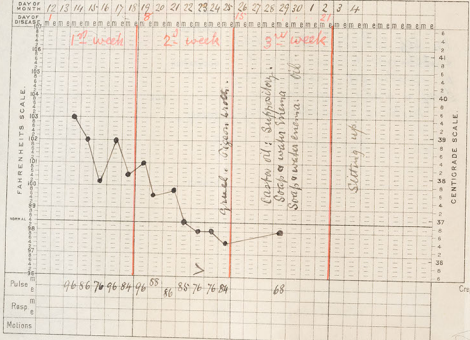 DAY OF MONTH 12 13 14 15 16 17 18 19 20 21 22 23 24 25 26 27 28 29 30 1 2 3 4
DAY OF DISEASE 8 15 21
m e m e m e m e m e m e m e m e m e m e m e m e m e m e m e m e m e m e m e m e m e m e m e
1st week 2nd week 3rd week
FAHRENHEITS SCALE.
106
105
104
103
102
101
100
99
NORMAL
98
97
96
Gruel. Pigeon broth.
Castor oil: Suppository.
Soap & water Enema
Soap & water enema. Oil
Sitting up
CENTIGRADE SCALE.
40
39
38
37
36
Pulse m e 96 86 76 96 84 96 88 86 88 76 76 84 68
Resp m e
Motions